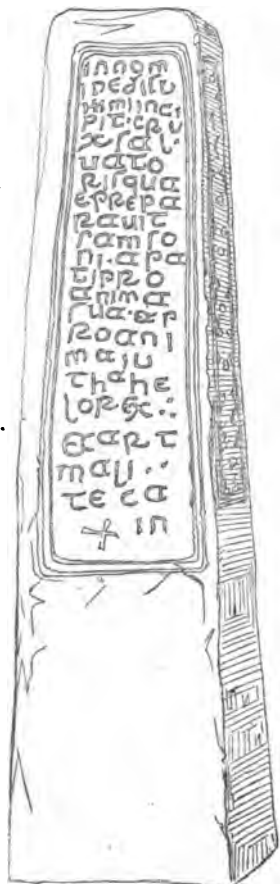 innom
inedisu
mmiinci
pit·cru
xsal·
uato
risqua
eprepa
rauit
samso
ni·apa
tipro
anima
sua·etp
roani
maiu
thahe
lorex·:
etart
mali·:
teca
+ in